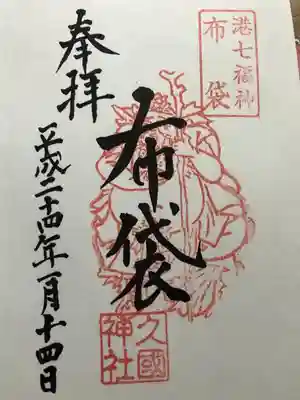 港七福神
布袋
奉拝
布袋
久國
神社
平成二十四年一月十四日